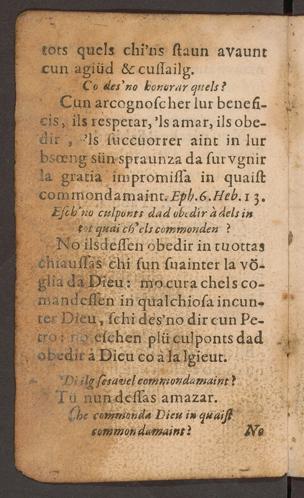 tots quels chi'ns staun avaunt
cun agiüd & cussailg.
Co des'no honorar quels?
Cun arcognoscher lur benefi-
cis, ils respetar, 'ls amar, ils obe-
dir , 'ls succuorrer aint in lur
bsœng sün spraunza da survgnir
la gratia impromissa in quaist
commondamaint. Eph. 6. Heb. 13.
Esch'no culponts dad obedir à dels in
tot quai ch'els commonden ?
No ils dessen obedir in tuottas
chiaussas chi sun suainter la võ-
glia da Dieu: mo cura chels co-
mandessen in qualchiosa incun-
ter Dieu, schi des'no dir cun Pe-
tro: no eschen plü culponts dad
obedir à Dieu co à la lgieut.
Di ilg sesavel commondamaint?
Tü nun dessas amazar.
Che commonda Dieu in quaist
commondamaint?
No